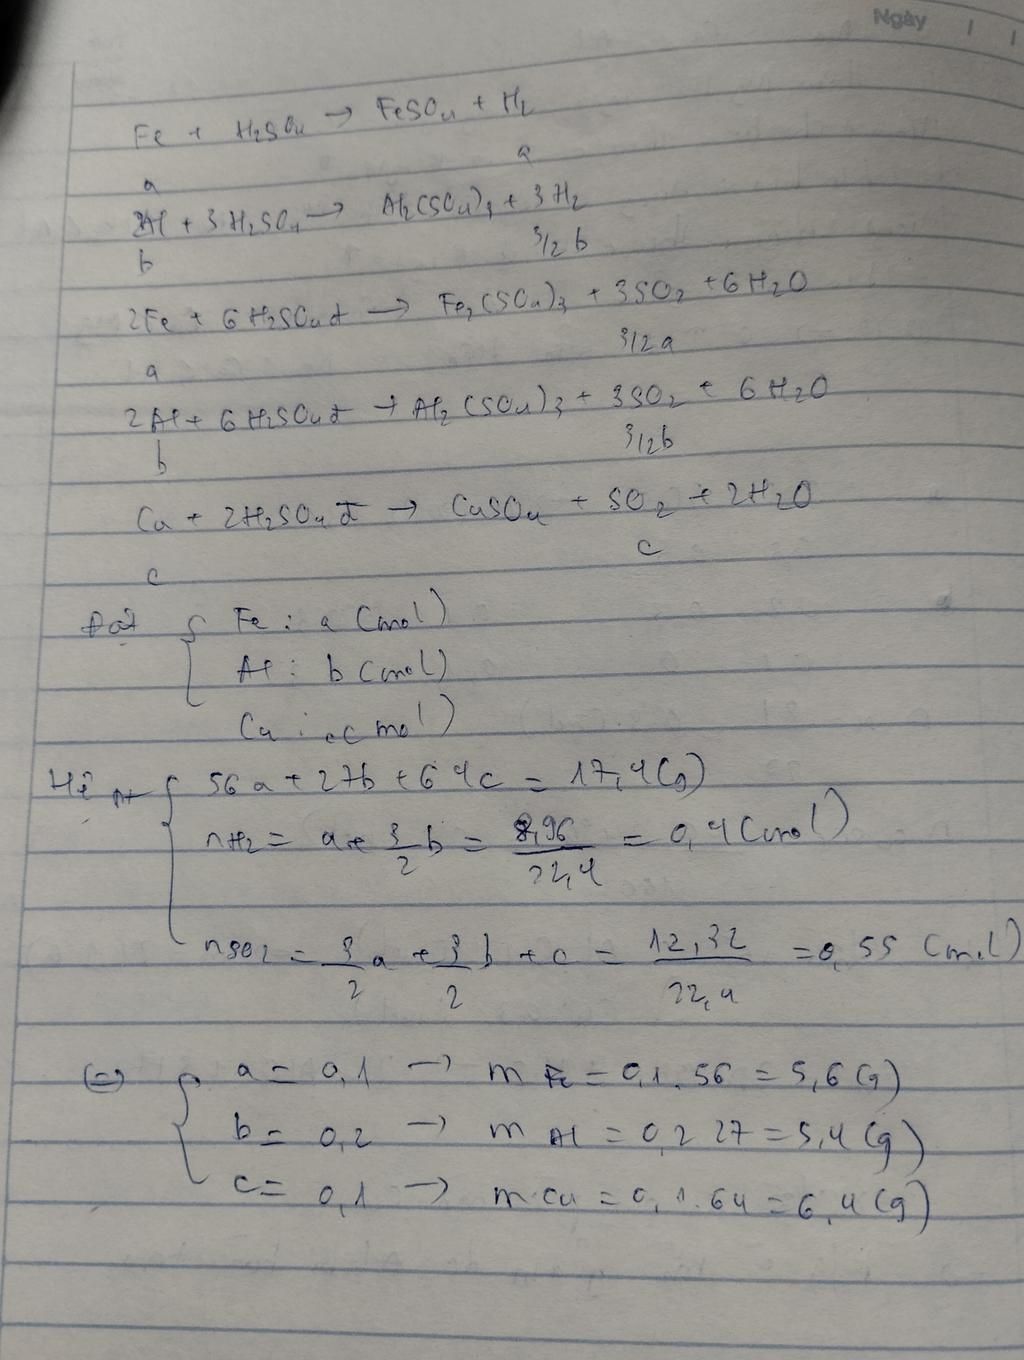 Ngày / /
Fe + H2SO4 → FeSO4 + H2
a a
2Al + 3H2SO4 → Al2(SO4)3 + 3H2
b 3/2 b
2Fe + 6H2SO4đ → Fe2(SO4)3 + 3SO2 + 6H2O
a 3/2 a
2Al + 6H2SO4đ → Al2(SO4)3 + 3SO2 + 6H2O
b 3/2b
Cu + 2H2SO4đ → CuSO4 + SO2 + 2H2O
c c
Đặt { Fe : a (mol)
Al : b (mol)
Cu : c mol)
Hệ pt { 56a + 27b + 64c = 17,4(g)
nH2 = a + 3/2 b = 8,96/22,4 = 0,4 (mol)
nSO2 = 3/2 a + 3/2 b + c = 12,32/22,4 = 0,55 (mol)
(=) { a = 0,1 → m Fe = 0,1 . 56 = 5,6 (g)
b = 0,2 → m Al = 0,2 27 = 5,4 (g)
c = 0,1 → m Cu = 0,1 . 64 = 6,4 (g)